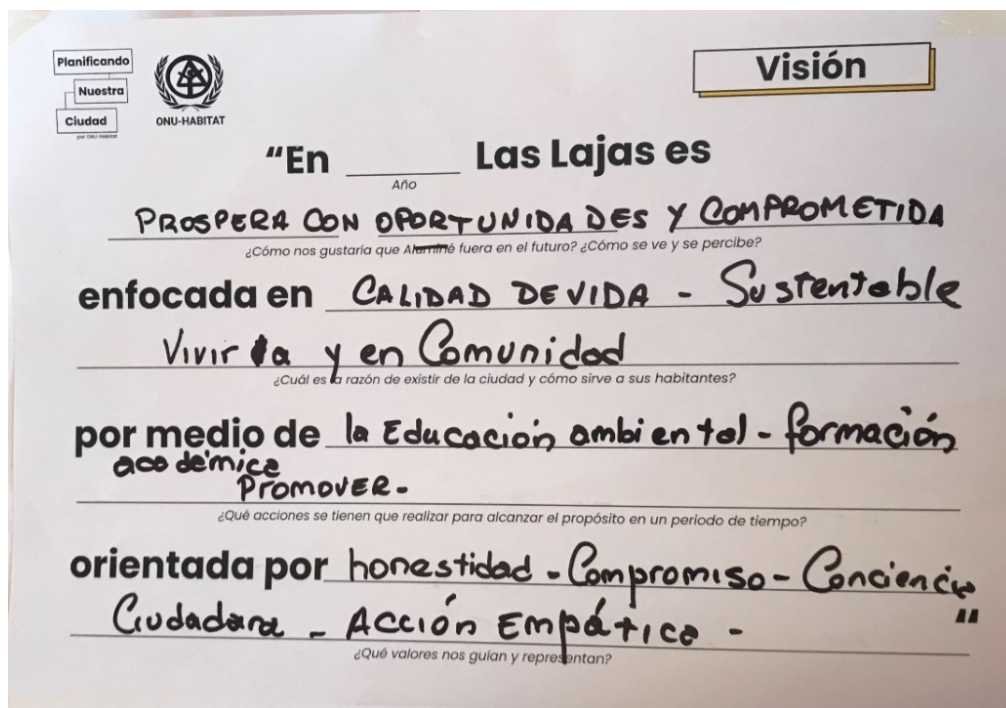 Planificando
Nuestra
Ciudad
por ONU-Habitat
ONU-HABITAT
Visión
"En ______ Las Lajas es
Año
PROSPERA CON OPORTUNIDADES Y COMPROMETIDA
¿Cómo nos gustaría que Aluminé fuera en el futuro? ¿Cómo se ve y se percibe?
enfocada en CALIDAD DE VIDA - Sustentable
Vivir la y en Comunidad
¿Cuál es la razón de existir de la ciudad y cómo sirve a sus habitantes?
por medio de la Educación ambiental - formación
académica
PROMOVER-
¿Qué acciones se tienen que realizar para alcanzar el propósito en un periodo de tiempo?
orientada por honestidad - Compromiso - Conciencia
Ciudadana - ACCIÓN EMPÁTICA - "
¿Qué valores nos guían y representan?